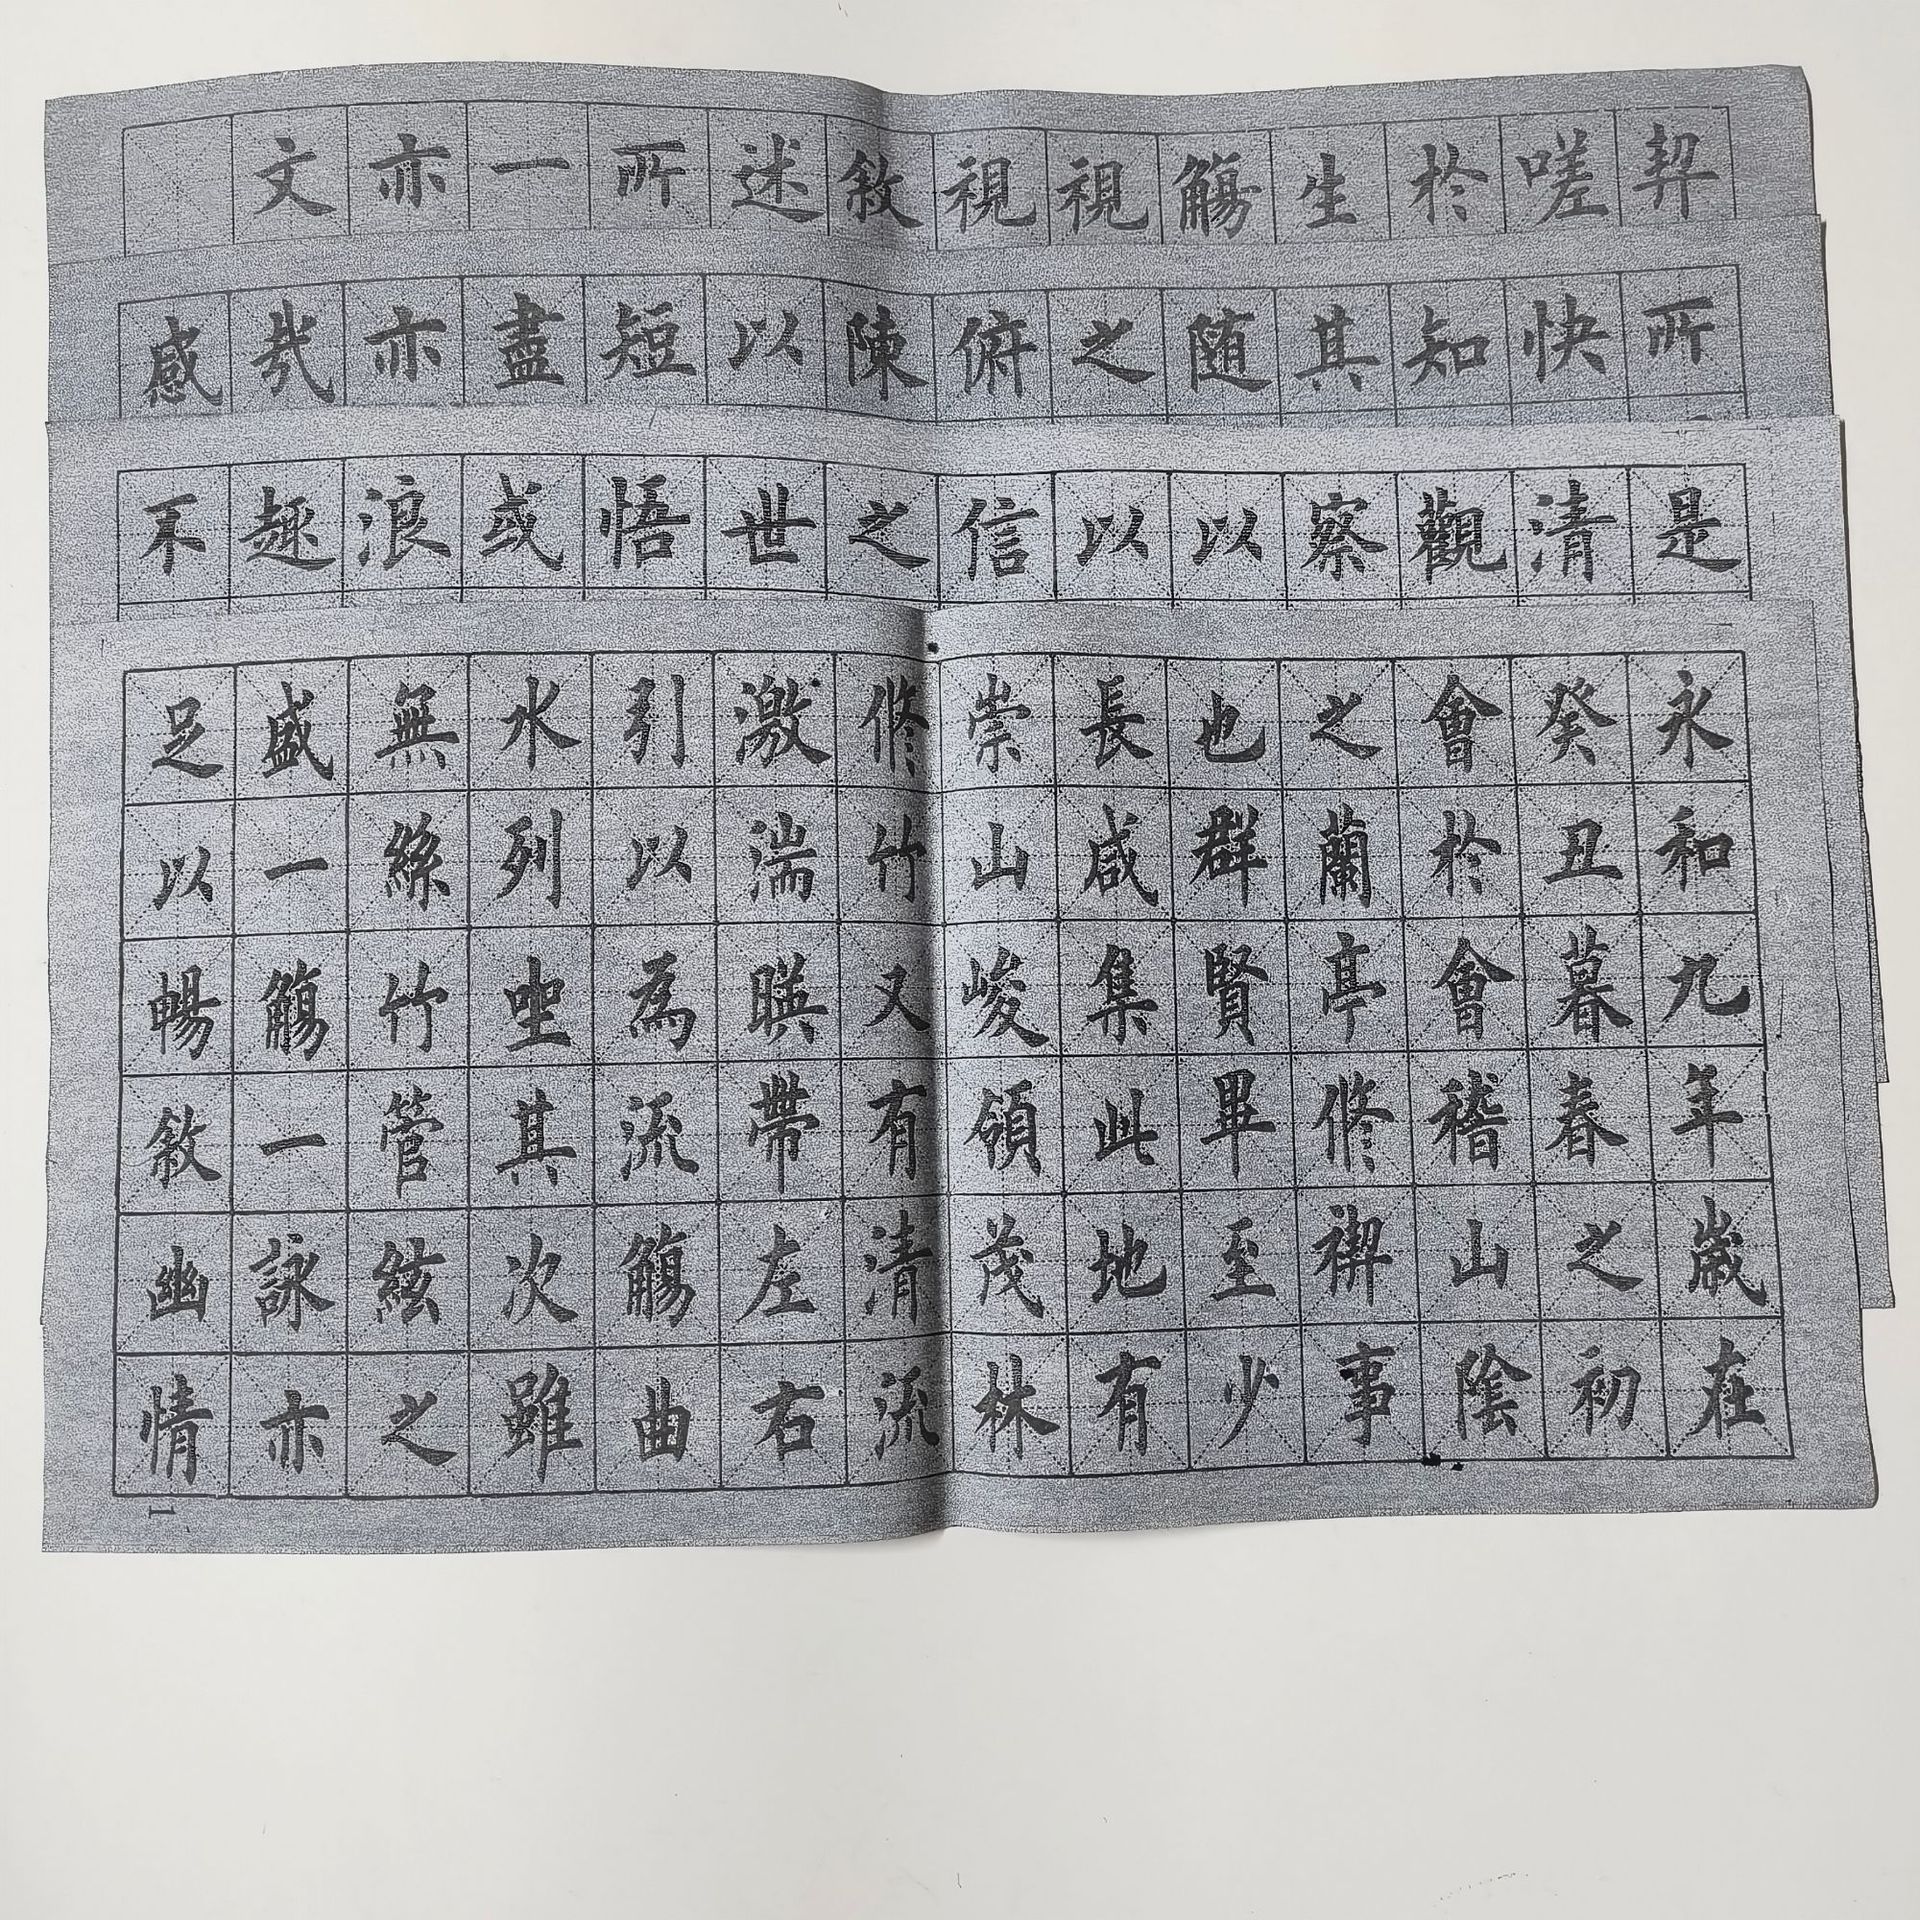 契嗟於生觴視視敘述所一亦文
所快知其随之俯陳以短盡亦哉感
是清觀察以以信之世悟或浪趣不
永和九年歲在
癸丑暮春之初
會於會稽山陰
之蘭亭修禊事
也群賢畢至少
長咸集此地有
崇山峻領茂林
修竹又有清流
激湍暎帶左右
引以為流觴曲
水列坐其次雖
無絲竹管絃之
盛一觴一詠亦
足以暢敘幽情
1